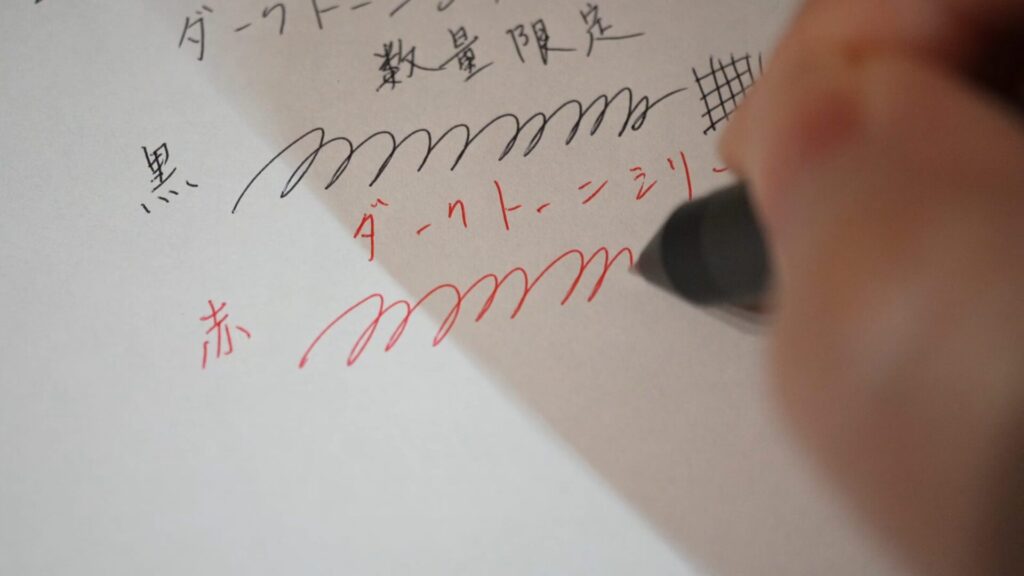 ダークトーン
数量限定
黒
ダークトーンシリー
赤